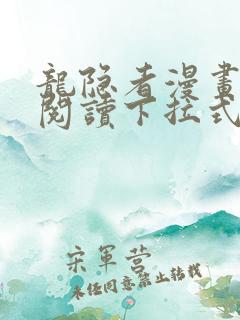 龍隐者漫畫
閱讀下拉式
宋軍营
未经同意禁止转载